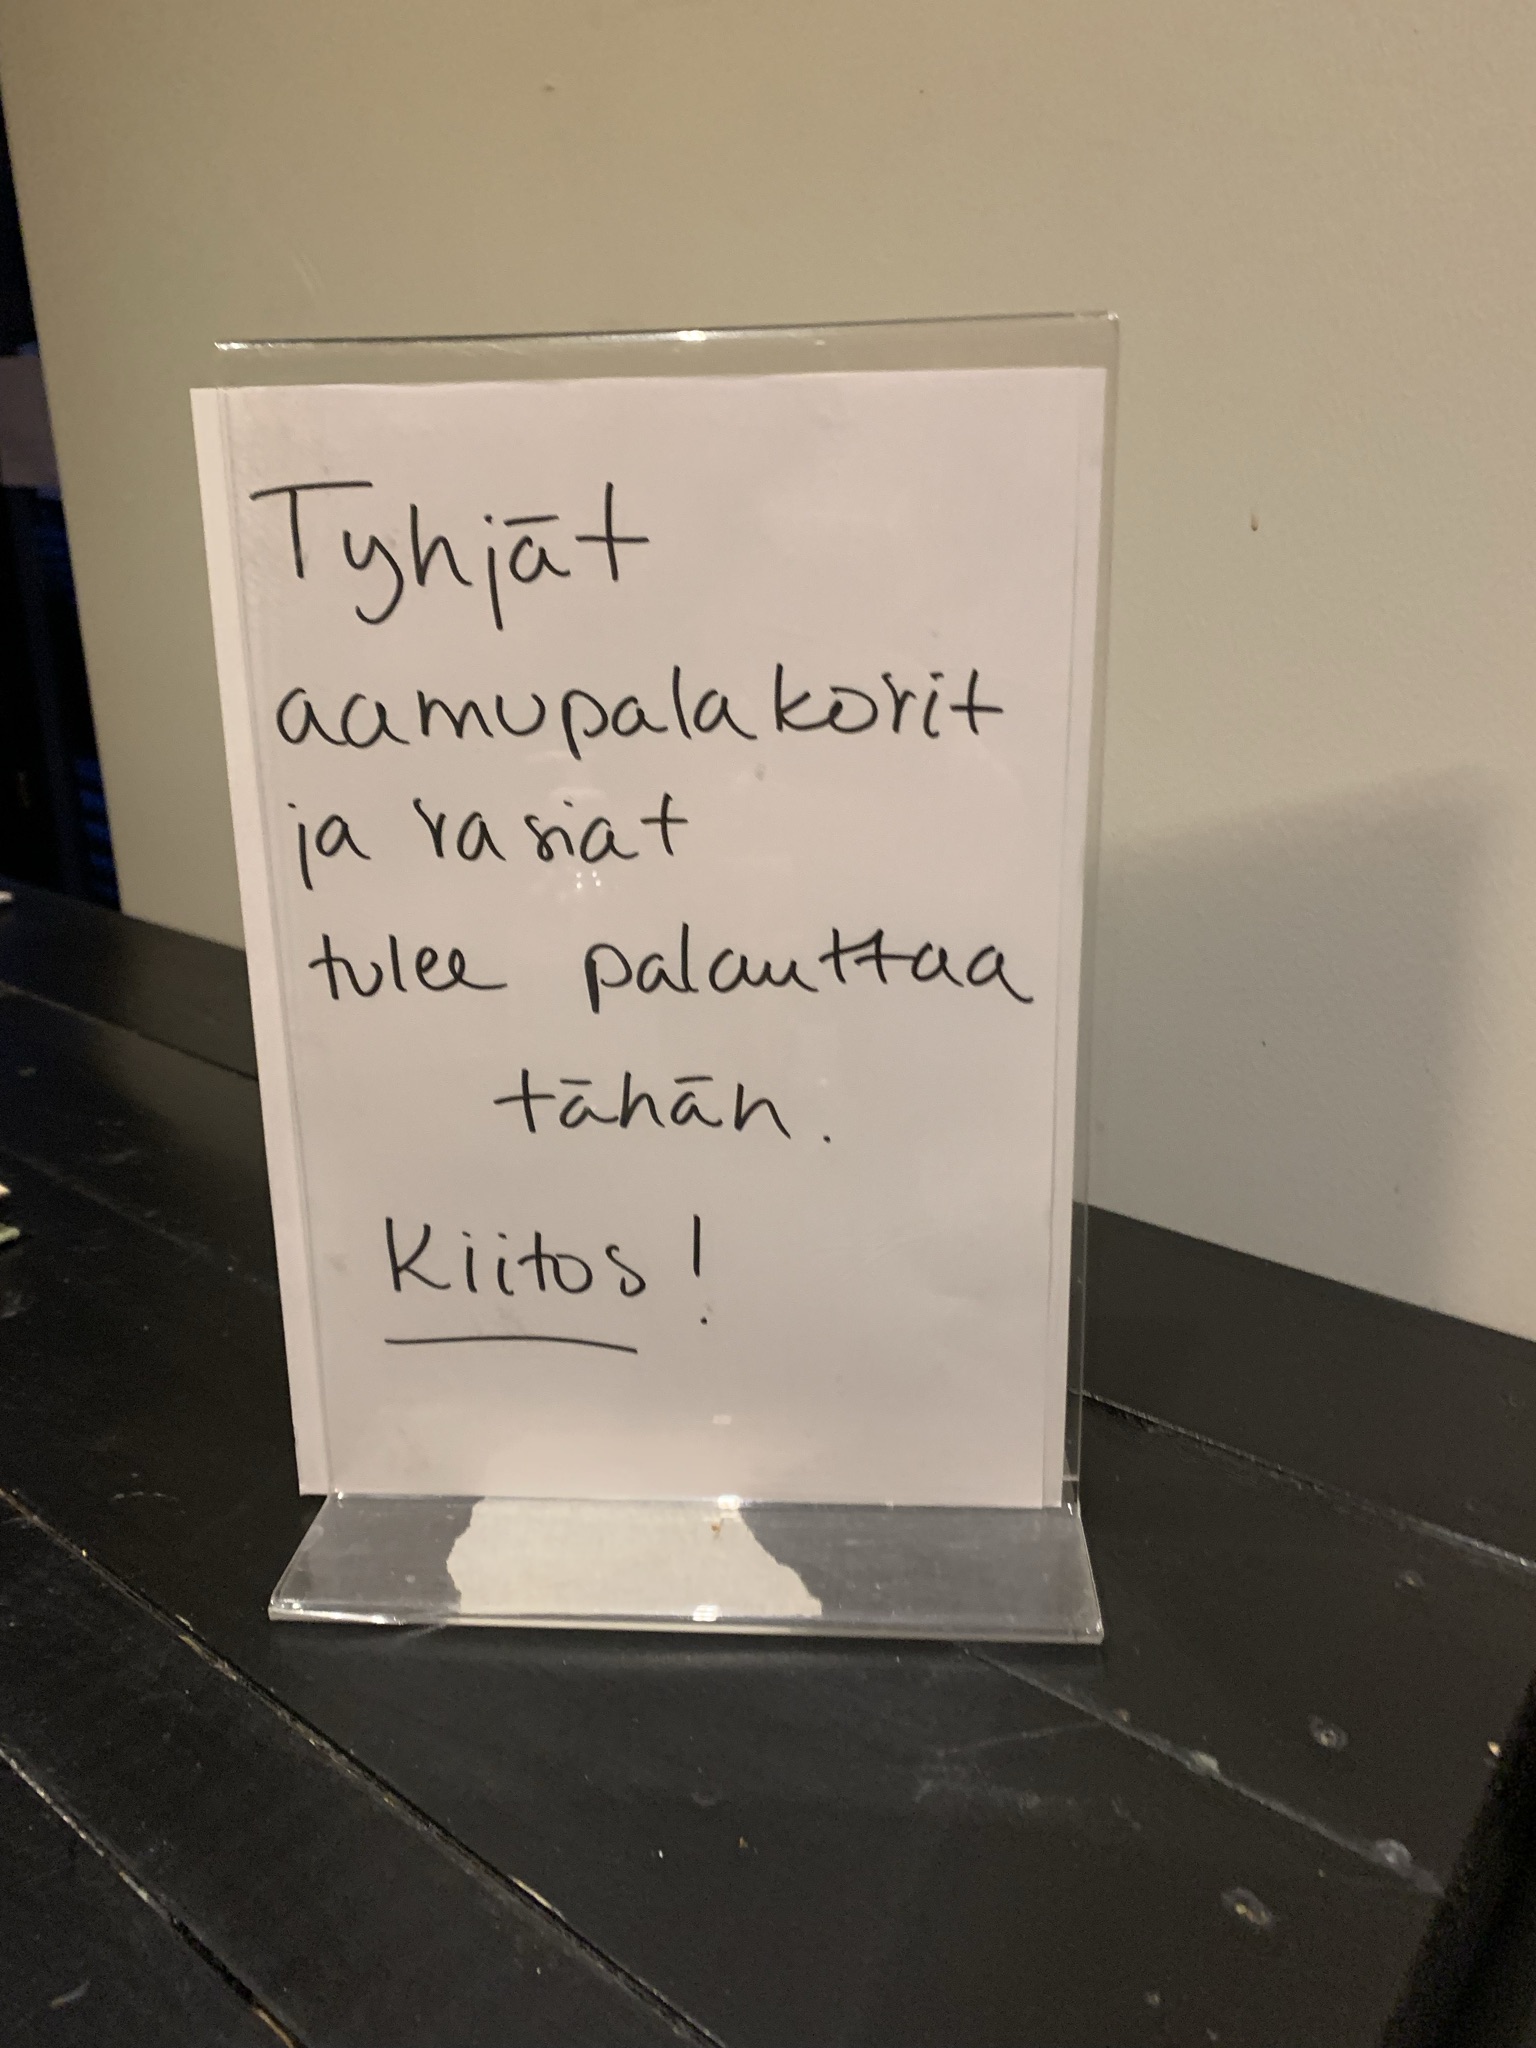 Tyhjät
aamupalakorit
ja rasiat
tulee palauttaa
tähän.
Kiitos!